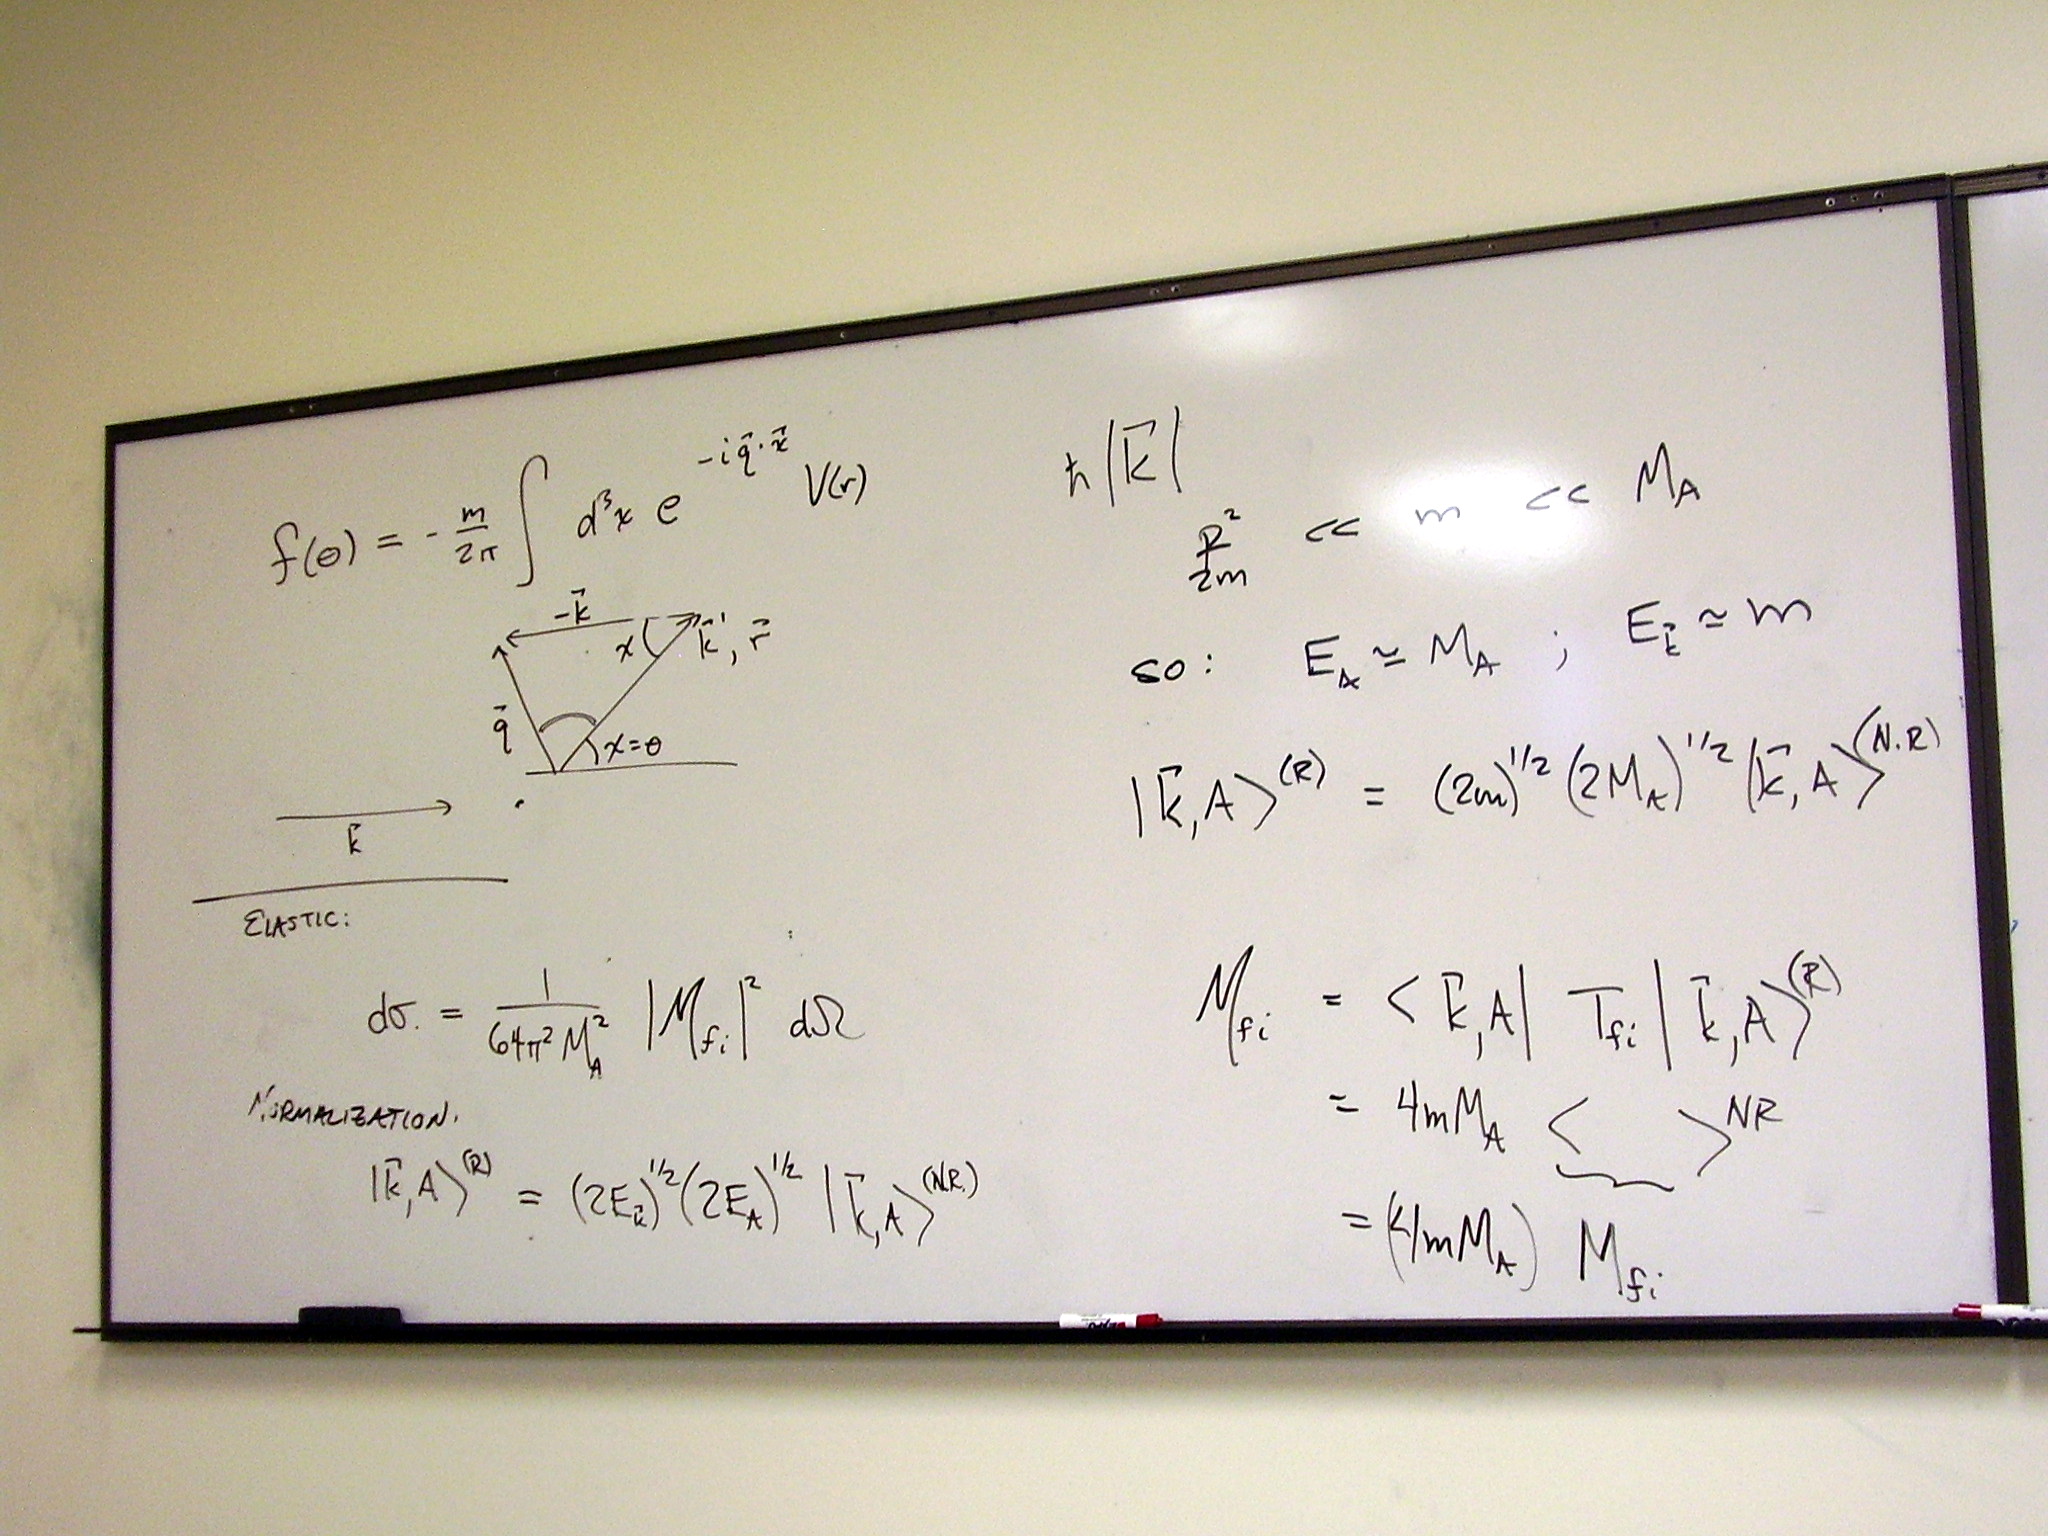 f(θ) = - m/2π ∫ d³x e^{-i q⃗·x⃗} V(r)
-k⃗
χ k⃗', r⃗
q⃗
χ=θ
k⃗
ELASTIC:
dσ. = 1/(64π² M_A²) |M_fi|² dΩ
NORMALIZATION.
|k⃗,A⟩^(R) = (2E_k⃗)^1/2 (2E_A)^1/2 |k⃗,A⟩^(N.R.)
ħ|k⃗|
p²/2m << m << M_A
so: E_A ≃ M_A ; E_k⃗ ≃ m
|k⃗,A⟩^(R) = (2m)^1/2 (2M_A)^1/2 |k⃗,A⟩^(N.R)
M_fi = <k⃗,A| T_fi |k⃗,A⟩^(R)
= 4mM_A < >^NR
= (4mM_A) M_fi